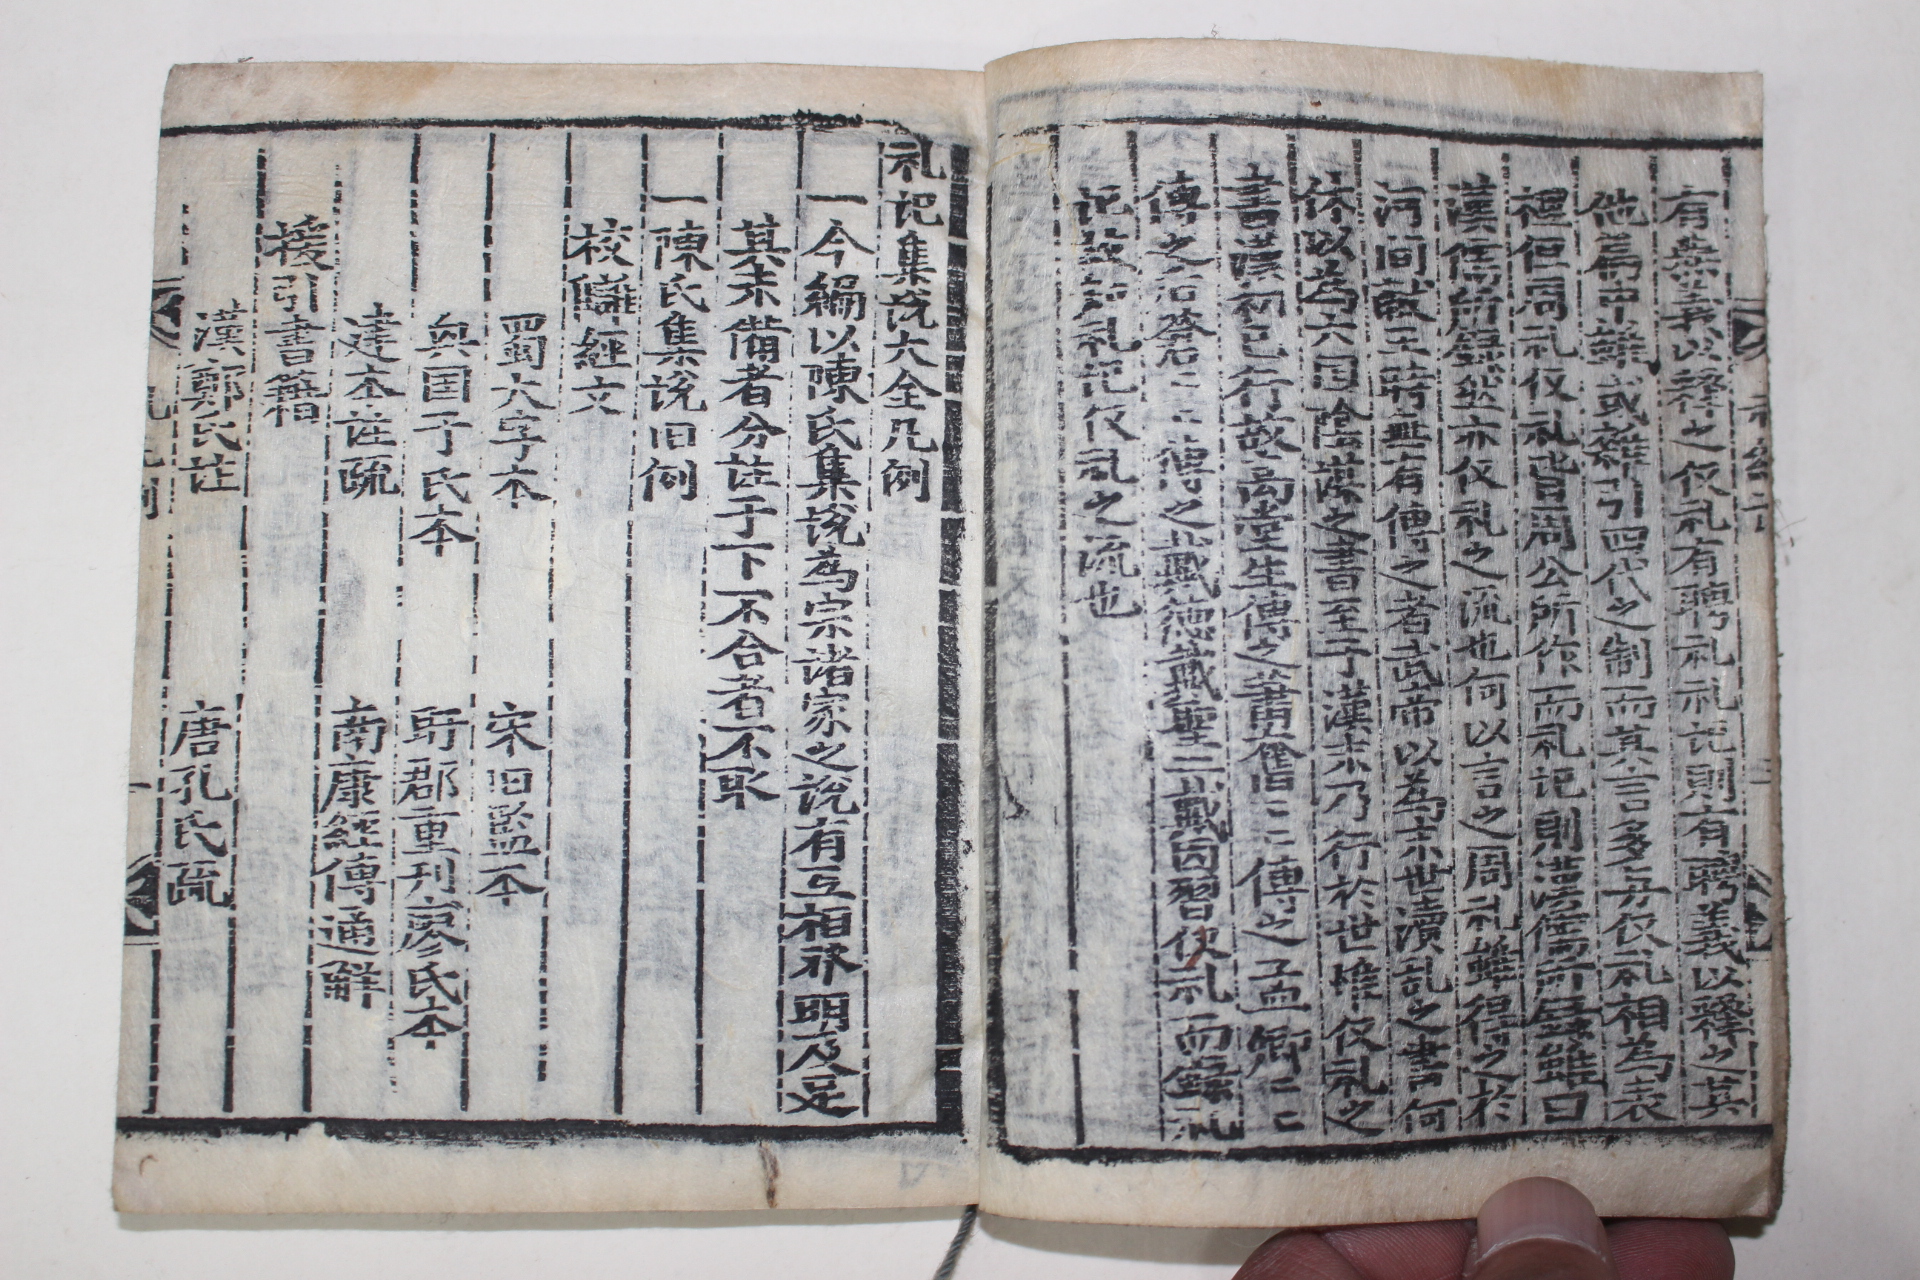 有燕義以釋之仪礼有聘礼礼记則有聘義以釋之其
他篇中雖或雜引四代之制而其言多与仪礼相為表
裡但周礼仪礼皆周公所作而礼记則漢儒所錄雖曰
漢儒所錄然亦仪礼之流也何以言之周礼雖得之於
河间献王時無有傳之者武帝以為末世瀆乱之書何
休以為六国陰謀之書至于漢末乃行於世惟仪礼之
書漢初已行故高堂生傳之蕭奮二二傳之孟卿二二
傳之后蒼二二傳之戴德戴聖二戴因習仪礼而錄礼
记故知礼记仪礼之流也
礼记集说大全凡例
一今編以陳氏集说為宗諸家之说有互相發明及足
其未備者分註于下不合者不取
一陳氏集说旧例
校讎經文
蜀大字本
宋旧監本
興国于氏本
盱郡重刊廖氏本
建本註疏
南康經傳通解
援引書籍
漢鄭氏註
唐孔氏疏